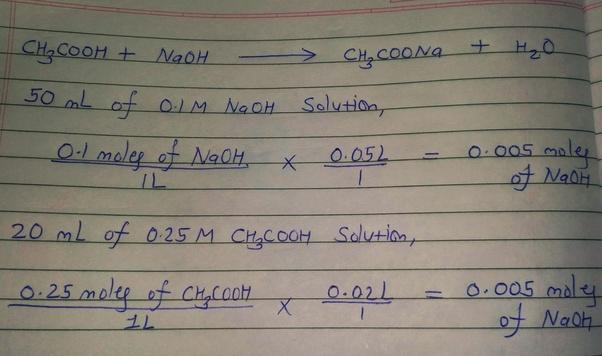 CH₃COOH + NaOH ⟶ CH₃COONa + H₂O
50 mL of 0.1M NaOH Solution,
0.1 moles of NaOH / 1L × 0.05L / 1 = 0.005 moles of NaOH
20 mL of 0.25M CH₃COOH Solution,
0.25 moles of CH₃COOH / 1L × 0.02L / 1 = 0.005 moles of NaOH